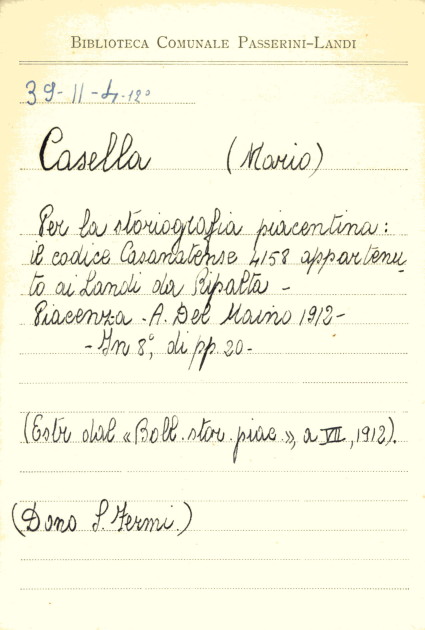 BIBLIOTECA COMUNALE PASSERINI-LANDI
39-II-4.12°
Casella (Mario)
Per la storiografia piacentina:
il codice Casanatense 4158 appartenu-
to ai Landi da Ripalta -
Piacenza - A. Del Maino 1912 -
- In 8°, di pp. 20 -
(Estr. dal «Boll. stor. piac.», a VII, 1912).
(Dono S. Fermi.)